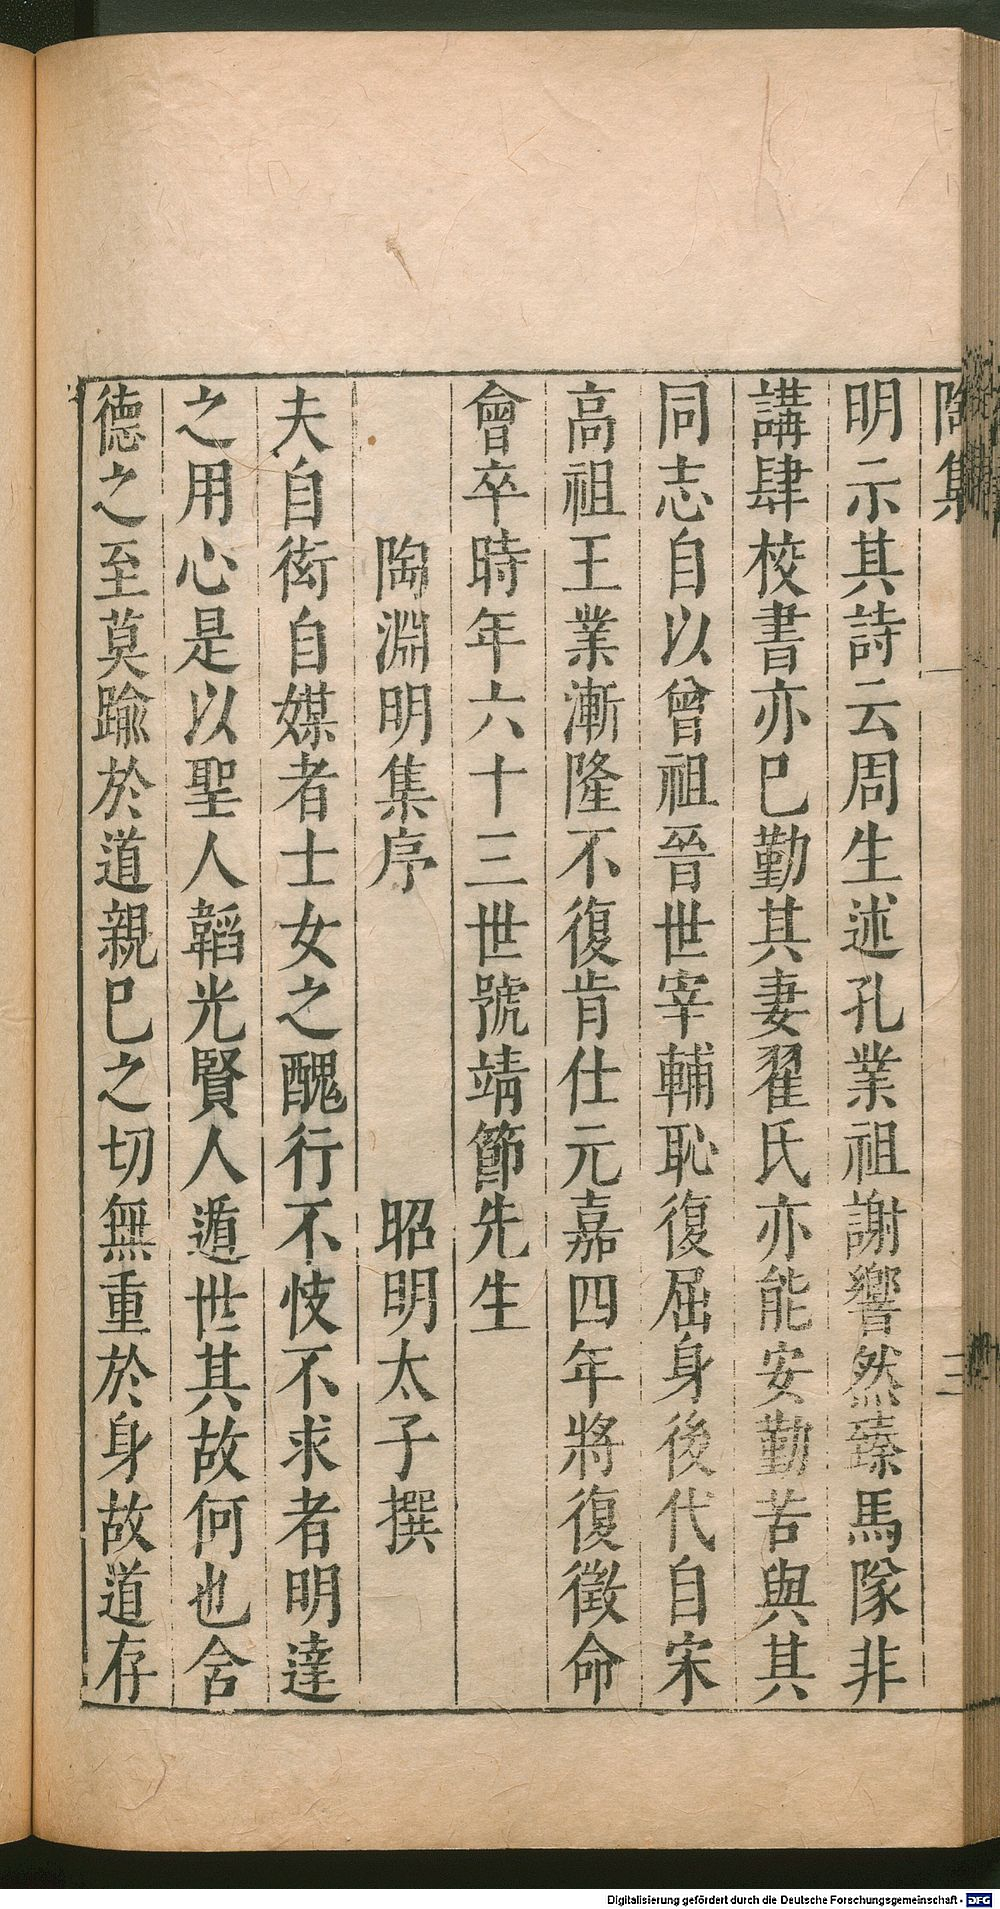 陶集 一 三
明示其詩云周生述孔業祖謝響然臻馬隊非
講肆校書亦巳勤其妻翟氏亦能安勤苦與其
同志自以曾祖晉世宰輔恥復屈身後代自宋
高祖王業漸隆不復肯仕元嘉四年將復徵命
會卒時年六十三世號靖節先生
陶淵明集序 昭明太子撰
夫自衒自媒者士女之醜行不忮不求者明達
之用心是以聖人韜光賢人遁世其故何也含
德之至莫踰於道親巳之切無重於身故道存
Digitalisierung gefördert durch die Deutsche Forschungsgemeinschaft - DFG